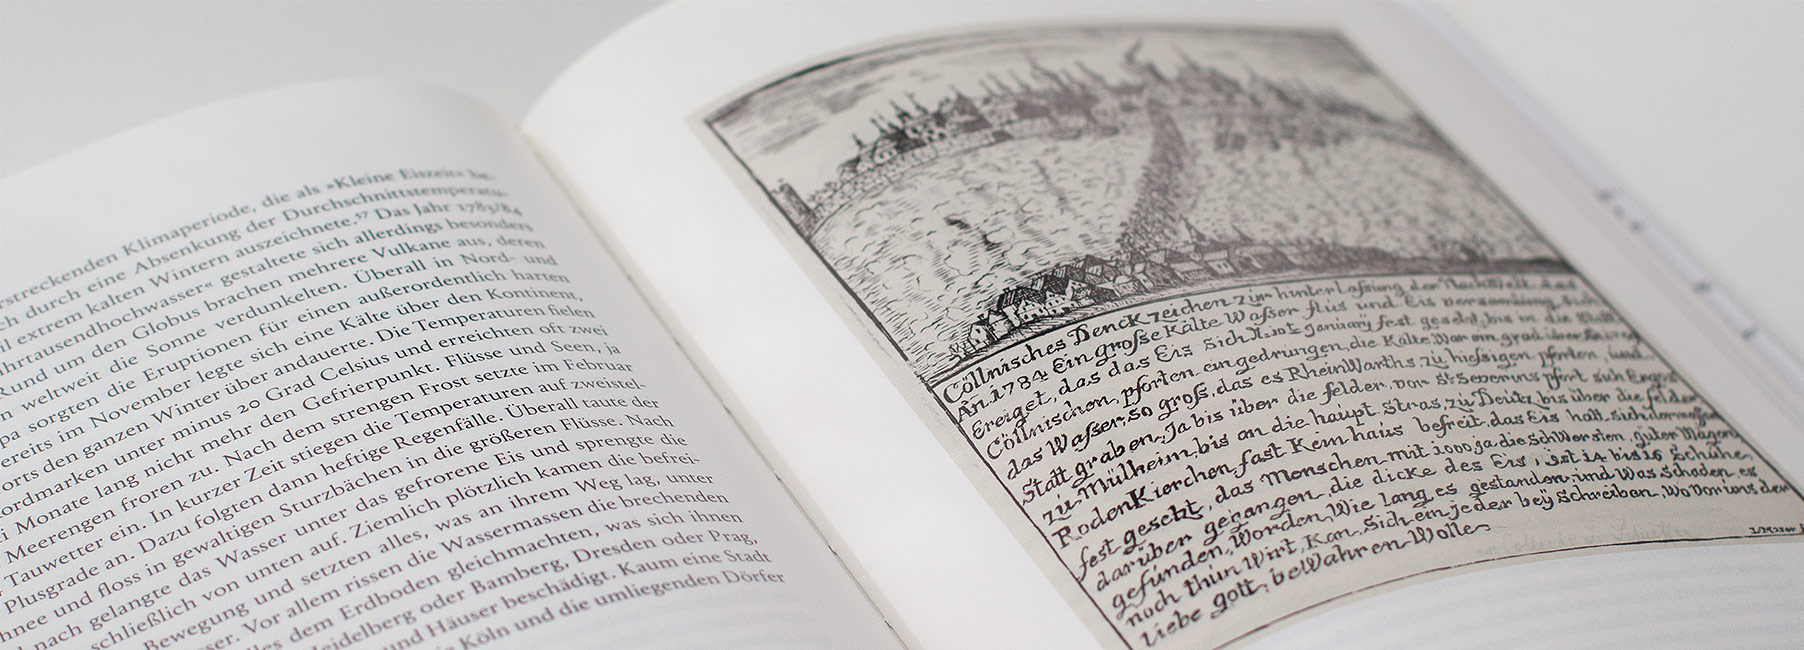 rstreckenden Klimaperiode, die als »Kleine Eiszeit« be-
ch durch eine Absenkung der Durchschnittstemperatu-
il extrem kalten Wintern auszeichnete.57 Das Jahr 1783/84
hrtausendhochwasser“ gestaltete sich allerdings besonders
Rund um den Globus brachen mehrere Vulkane aus, deren
n weltweit die Sonne verdunkelten. Überall in Nord- und
pa sorgten die Eruptionen für einen außerordentlich harten
ereits im November legte sich eine Kälte über den Kontinent,
orts den ganzen Winter über andauerte. Die Temperaturen fielen
ordmarken unter minus 20 Grad Celsius und erreichten oft zwei
i Monate lang nicht mehr den Gefrierpunkt. Flüsse und Seen, ja
Meerengen froren zu. Nach dem strengen Frost setzte im Februar
Tauwetter ein. In kurzer Zeit stiegen die Temperaturen auf zweistel-
Plusgrade an. Dazu folgten dann heftige Regenfälle. Überall taute der
hnee und floss in gewaltigen Sturzbächen in die größeren Flüsse. Nach
nach gelangte das Wasser unter das gefrorene Eis und sprengte die
schließlich von unten auf. Ziemlich plötzlich kamen die befrei-
Bewegung und setzten alles, was an ihrem Weg lag, unter
sser. Vor allem rissen die Wassermassen die brechenden
lles dem Erdboden gleichmachten, was sich ihnen
eidelberg oder Bamberg, Dresden oder Prag,
und Häuser beschädigt. Kaum eine Stadt
e Köln und die umliegenden Dörfer
Cöllnisches Denck zeichen zur hinter Lassung der Nach Welt, das
An. 1784 Ein große Kälte Waßer flus und Eis versamlung, sich
Ereiget, das das Eis sich d. 11ot january fest gesetzt, bis in die
Cöllnischen, pforten eingedrungen, die Kälte War ein grad über
das Waßer, so groß, das es RheinWarths, zu hießigen pforten, und
Statt graben, Ja bis über die felder, vor St Severins pfort sich Erges
zu Mülheim, bis an die haupt, stras, zu Deutz, bis über die felder
RodenKierchen, fast Kein haus befreit, das Eis hatt, sich dermaßen
fest gesetzt, das Menschen, mit 1000, ja, die schWersten, güter Wägen,
darüber gegangen, die dicke des Eis, ist 14 bis 16 Schühe,
gefunden, Worden, Wie lang es gestanden, und Was Schaden, es
noch thun Wirt, Kan, sich ein jeder bey schreiben, Wo Vor uns der
Liebe gott, beWahren Wolle